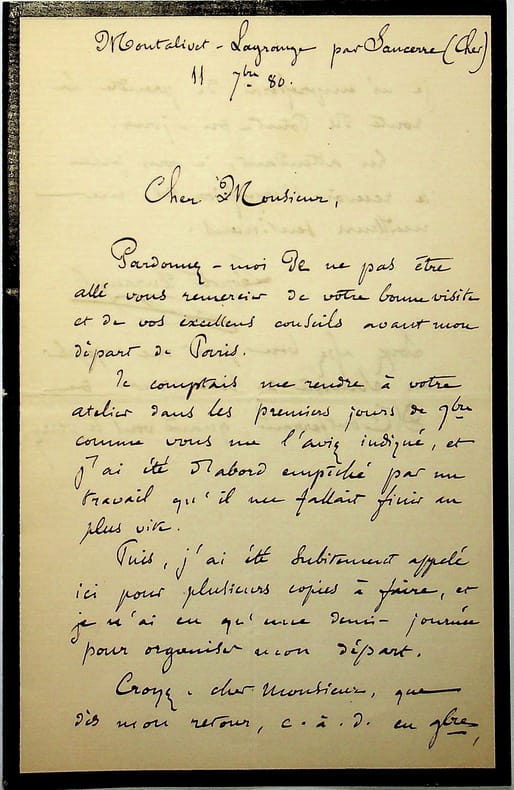 Montalivet-Lagrange par Sancerre (Cher)
11 7bre 80.
Cher Monsieur,
Pardonnez-moi de ne pas être
allé vous remercier de votre bonne visite
et de vos excellens conseils avant mon
départ de Paris.
Je comptais me rendre à votre
atelier dans les premiers jours de 7bre
comme vous me l'aviez indiqué, et
j'ai été d'abord empêché par un
travail qu'il me fallait finir au
plus vite.
Puis, j'ai été subitement appelé
ici pour plusieurs copies à faire, et
je n'ai eu qu'une demi-journée
pour organiser mon départ.
Croyez, cher Monsieur, que
dès mon retour, c.à.d. en 9bre,